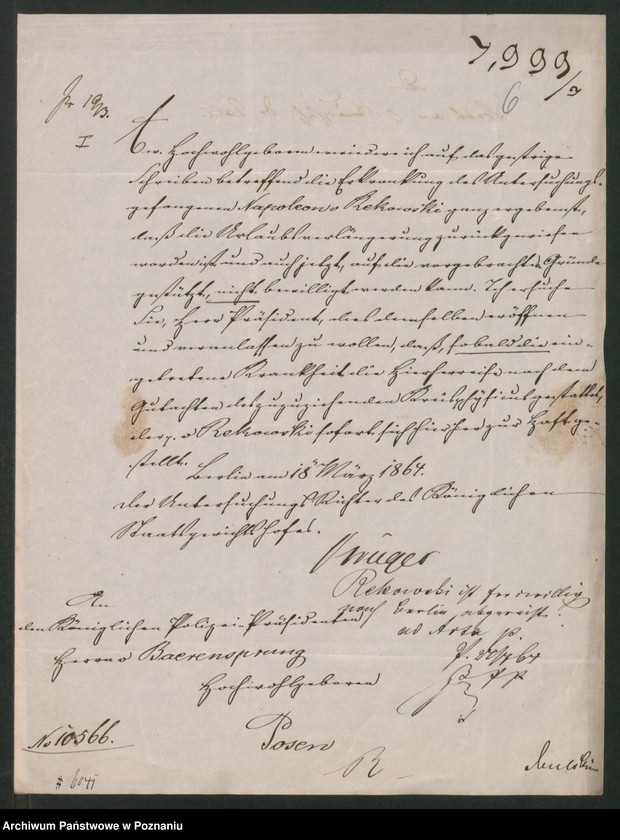 7,999/a
6
pr 19/3.
I
Ew. Hochwohlgeboren erwiedere ich auf das gestrige
Schreiben betreffend die Erkrankung des Untersuchungs-
gefangenen Napoleon v Rekowski ganz ergebenst,
daß die Urlaubsverlängerung zurückgewiesen
worden ist und auch jetzt, auf die vorgebrachten Gründe
gestützt, nicht bewilligt werden kann. Ich ersuche
Sie, Herr Präsident, dies demselben eröffnen
und veranlassen zu wollen, daß, sobald die ein-
getretene Krankheit die Hierherreise nach dem
Gutachten des zuzuziehenden Kreisphysicus gestattet,
der p. v Rekowski sofort sich hierher zur Haft ge-
stellt.
Berlin am 18 März 1864.
Der Untersuchungs Richter des Königlichen
Staatsgerichtshofes.
Krüger
An
den Königlichen Polizei-Präsidenten
Herrn v Baerensprung
Hochwohlgeboren
Posen
Rekowski ist freiwillig
nach Berlin abgereist.
ad Acta
No 10566.
R
Archiwum Państwowe w Poznaniu